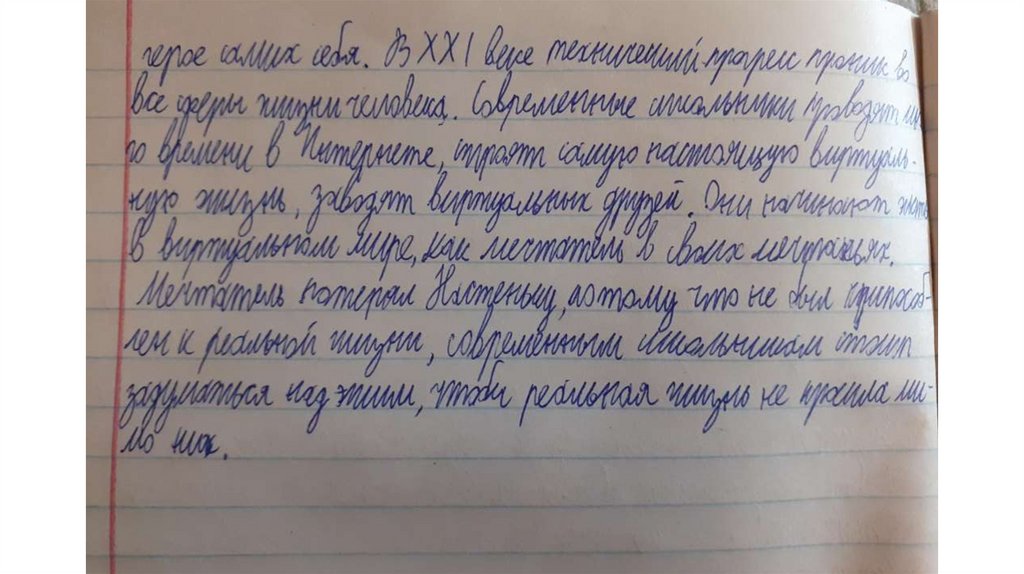 герое самих себя. В XXI веке технический прогресс проник во
все сферы жизни человека. Современные школьники проводят мно-
го времени в Интернете, строят самую настоящую виртуаль-
ную жизнь, заводят виртуальных друзей. Они начинают жить
в виртуальном мире, как мечтатель в своих мечтаньях.
Мечтатель потерял Настеньку, потому что не был приспособ-
лен к реальной жизни, современным школьникам стоит
задуматься над этим, чтобы реальная жизнь не прошла ми-
мо них.